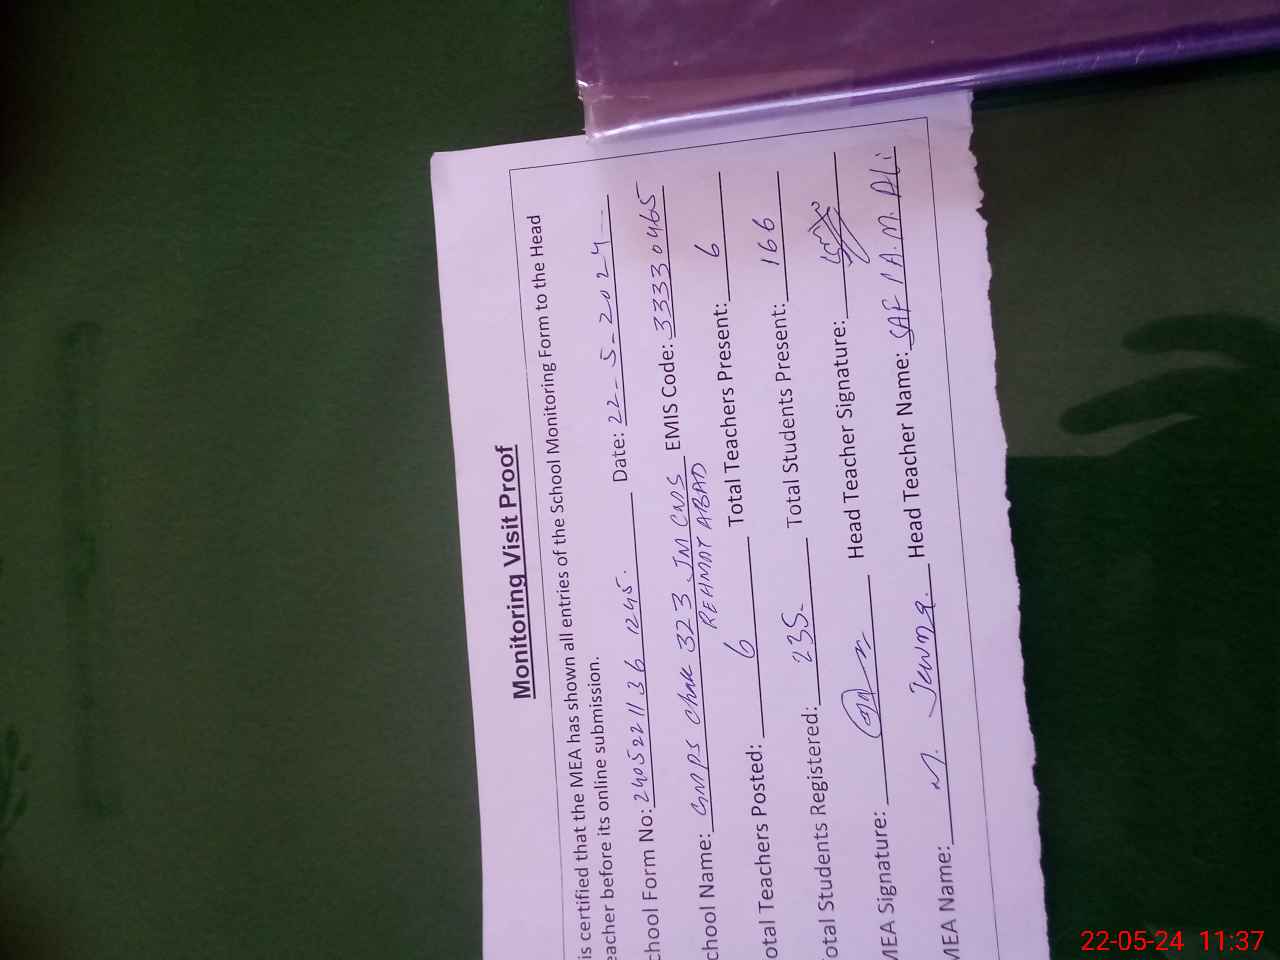 Monitoring Visit Proof
is certified that the MEA has shown all entries of the School Monitoring Form to the Head
eacher before its online submission.
chool Form No: 240522 1136 1245. Date: 22-5-2024
chool Name: GMPS Chak 323 JM CNS EMIS Code: 33330465
REHMAT ABAD
otal Teachers Posted: 6 Total Teachers Present: 6
otal Students Registered: 235 Total Students Present: 166
MEA Signature: Head Teacher Signature:
MEA Name: M. Head Teacher Name: M. Ali
22-05-24 11:37